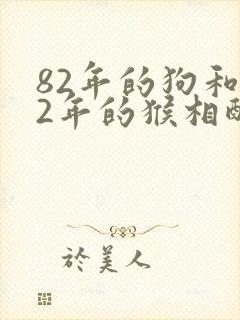 82年的狗和
2年的猴相配
於美人